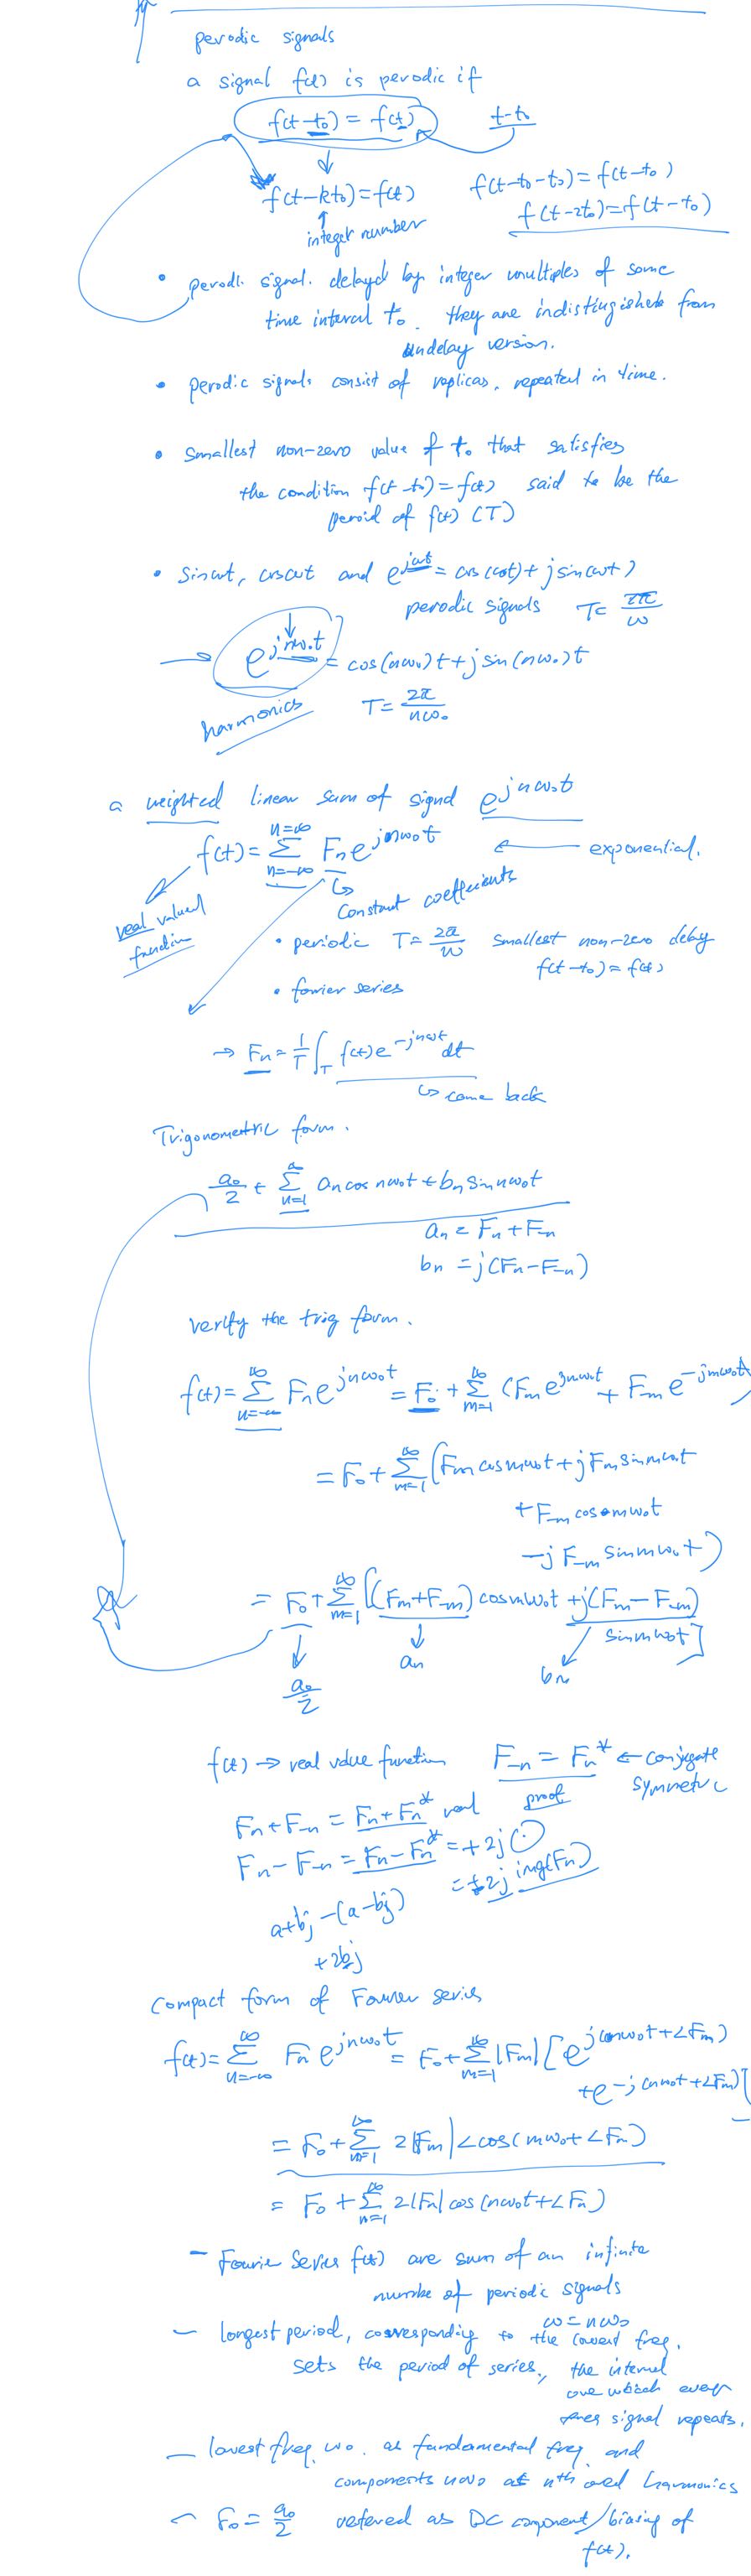 perodic signals
a signal f(t) is perodic if
f(t-t₀) = f(t)
t-t₀
f(t-kt₀)=f(t)
f(t-t₀-t₀)=f(t-t₀)
f(t-2t₀)=f(t-t₀)
integer number
• perodi. signal. delayd by integer multiples of some
time interval t₀. they are indistingishek from
undelay version.
• perodic signals consist of replicas, repeated in time.
• smallest non-zero value of t₀ that satisfies
the condition f(t-t₀)=f(t) said to be the
peroid of f(t) (T)
• sinωt, cosωt and e^{jωt} = cos(ωt)+jsin(ωt)
perodic signals T= 2π/ω
e^{jnω₀t} = cos(nω₀)t+j sin(nω₀)t
harmonics
T= 2π/nω₀
a weighted linear sum of signal e^{jnω₀t}
f(t)= Σ_{n=-∞}^{n=∞} Fₙ e^{jnω₀t} ← exponential.
Constant coefficients
real valued
function
• periodic T= 2π/ω smallest non-zero delay
f(t-t₀)=f(t)
• fourier series
→ Fₙ = 1/T ∫_T f(t)e^{-jnωt} dt
↳ come back
Trigonometric form.
a₀/2 + Σ_{n=1}^{∞} aₙcos nω₀t + bₙ sin nω₀t
aₙ = Fₙ + F₋ₙ
bₙ = j(Fₙ-F₋ₙ)
verify the trig form.
f(t)= Σ_{n=-∞}^{∞} Fₙe^{jnω₀t} = F₀ + Σ_{m=1}^{∞} (Fₘe^{jmω₀t} + F₋ₘe^{-jmω₀t})
= F₀+ Σ_{m=1}^{∞} (Fₘcosmω₀t+jFₘsinmω₀t
+F₋ₘcosmω₀t
-jF₋ₘ sinmω₀t)
= F₀+ Σ_{m=1}^{∞} [(Fₘ+F₋ₘ) cosmω₀t +j(Fₘ-F₋ₘ)
sinmω₀t]
a₀/2
aₙ
bₙ
f(t) → real value function F₋ₙ = Fₙ* ← conjigate
symmetric
proof
Fₙ+F₋ₙ = Fₙ+Fₙ* real
Fₙ-F₋ₙ = Fₙ-Fₙ* = +2j(·)
= +2j img(Fₙ)
a+bj-(a-bj)
+2bj
Compact form of Fourier series
f(t)= Σ_{n=-∞}^{∞} Fₙ e^{jnω₀t} = F₀+ Σ_{m=1}^{∞} |Fₘ| [e^{j(mω₀t+∠Fₘ)}
+e^{-j(mω₀t+∠Fₘ)}]
= F₀+ Σ_{m=1}^{∞} 2|Fₘ|∠cos(mω₀t+∠Fₙ)
= F₀ + Σ_{n=1}^{∞} 2|Fₙ| cos(nω₀t+∠Fₙ)
- Fourier Series f(t) are sum of an infinite
number of periodic signals
ω=nω₀
- longest period, corresponding to the lowest freq.
sets the period of series, the interval
over which every
signal repeats.
- lowest freq. ω₀. as fundamental freq. and
components nω₀ as nth harmonics
- F₀ = a₀/2 refered as DC component/biasing of
f(t).